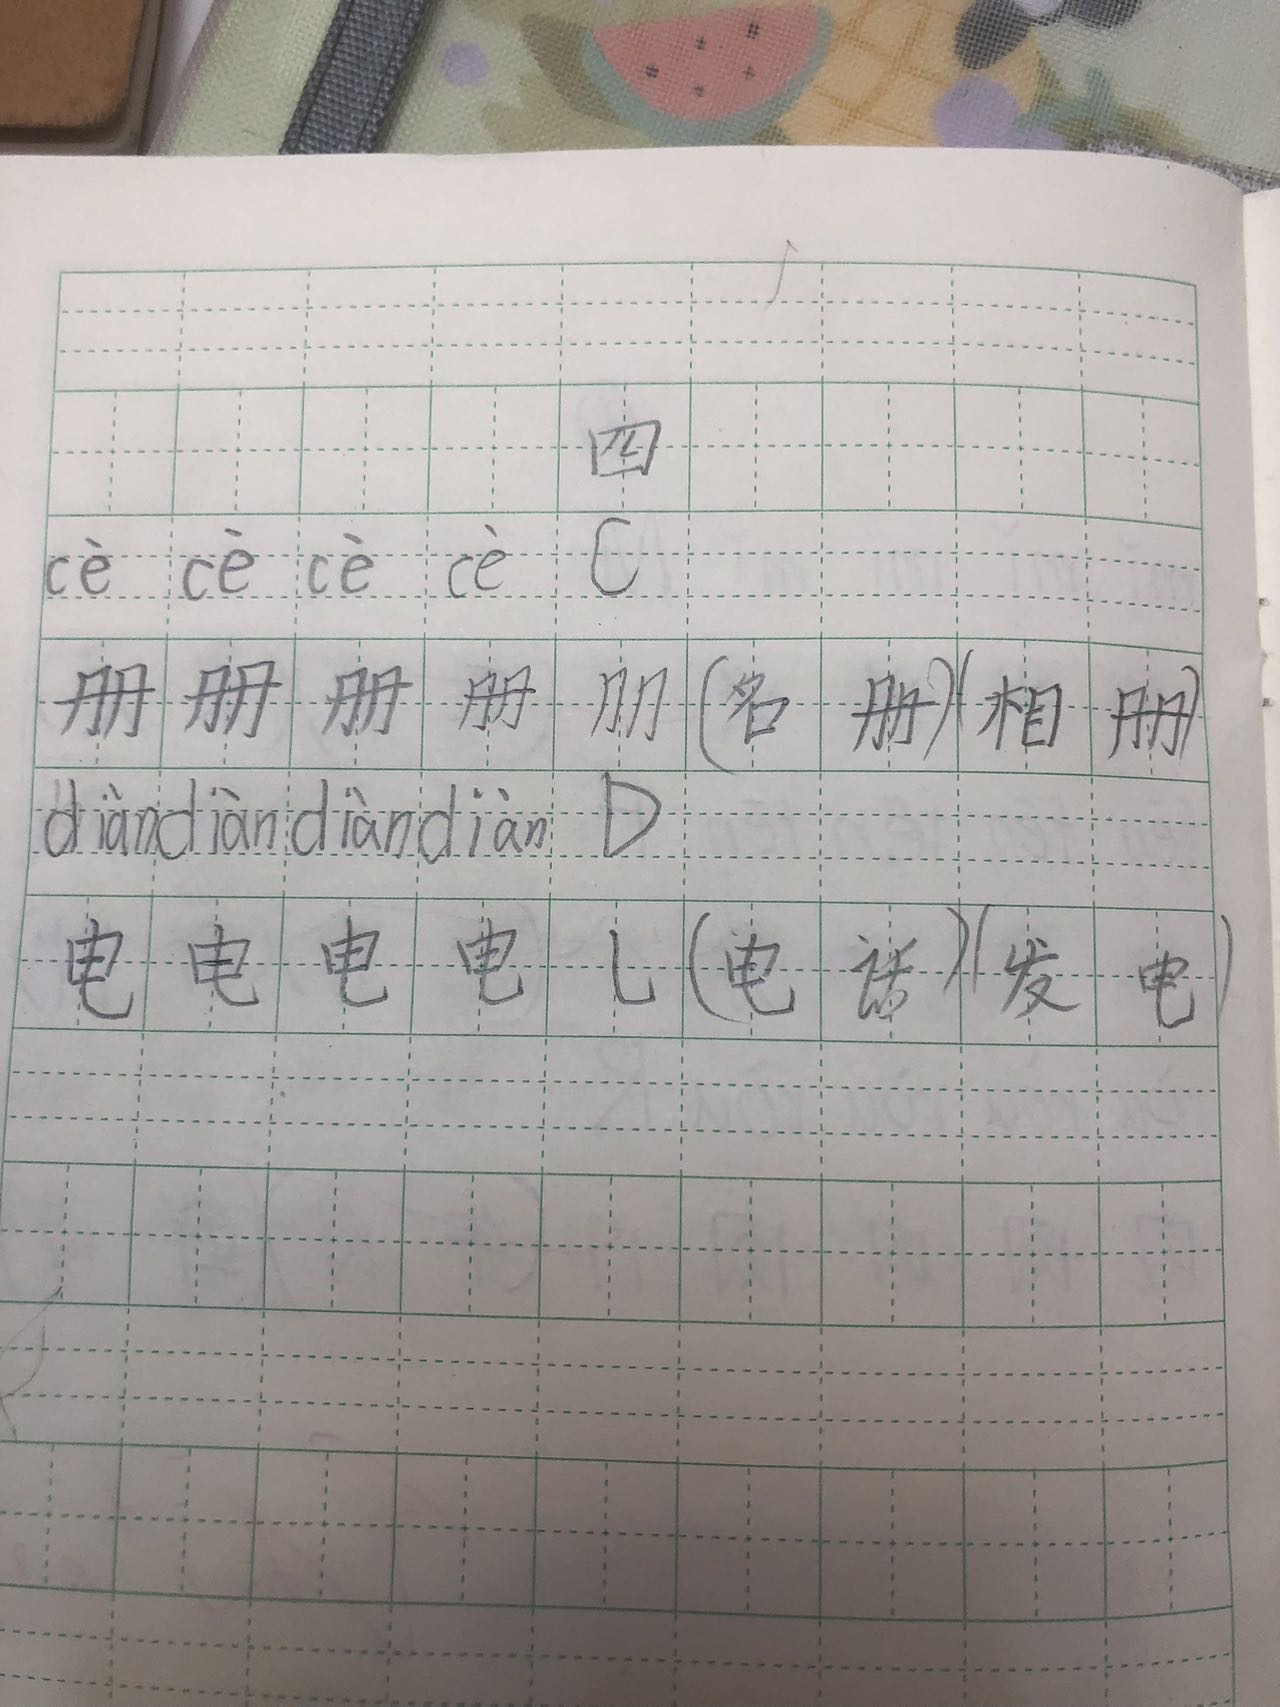 四
cè cè cè cè C
册 册 册 册 𠕁 (名 册)(相 册)
diàn diàn diàn diàn D
电 电 电 电 乚 (电 话)(发 电)